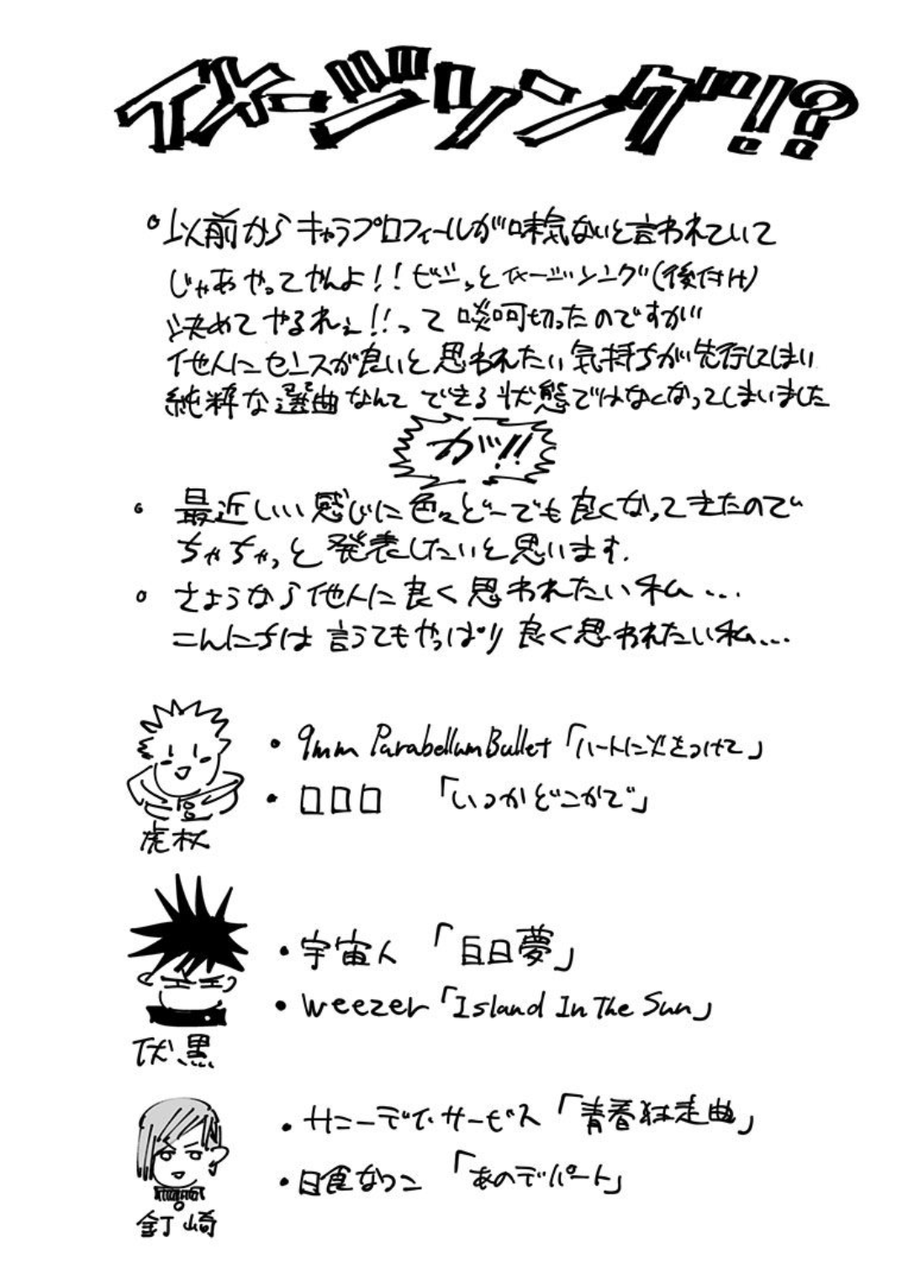 イメージソング!?
。以前からキャラプロフィールが味気ないと言われていて
じゃあやってやんよ!!ビシッとイメージソング(後付け)
決めてやるれぇ!!って啖呵切ったのですが
他人にセンスが良いと思われたい気持ちが先行してしまい
純粋な選曲なんてできる状態ではなくなってしまいました
がッ!!
。最近いい感じに色々どーでも良くなってきたので
ちゃちゃっと発表したいと思います.
。さようなら他人に良く思われたい私...
こんにちは言うてもやっぱり良く思われたい私...
・9mm Parabellum Bullet「ハートに火をつけて」
・口口口 「いつかどこかで」
虎杖
・宇宙人 「白日夢」
・weezer「Island In The Sun」
伏黒
・サニーデイ・サービス「青春狂走曲」
・日食なつこ 「あのデパート」
釘崎